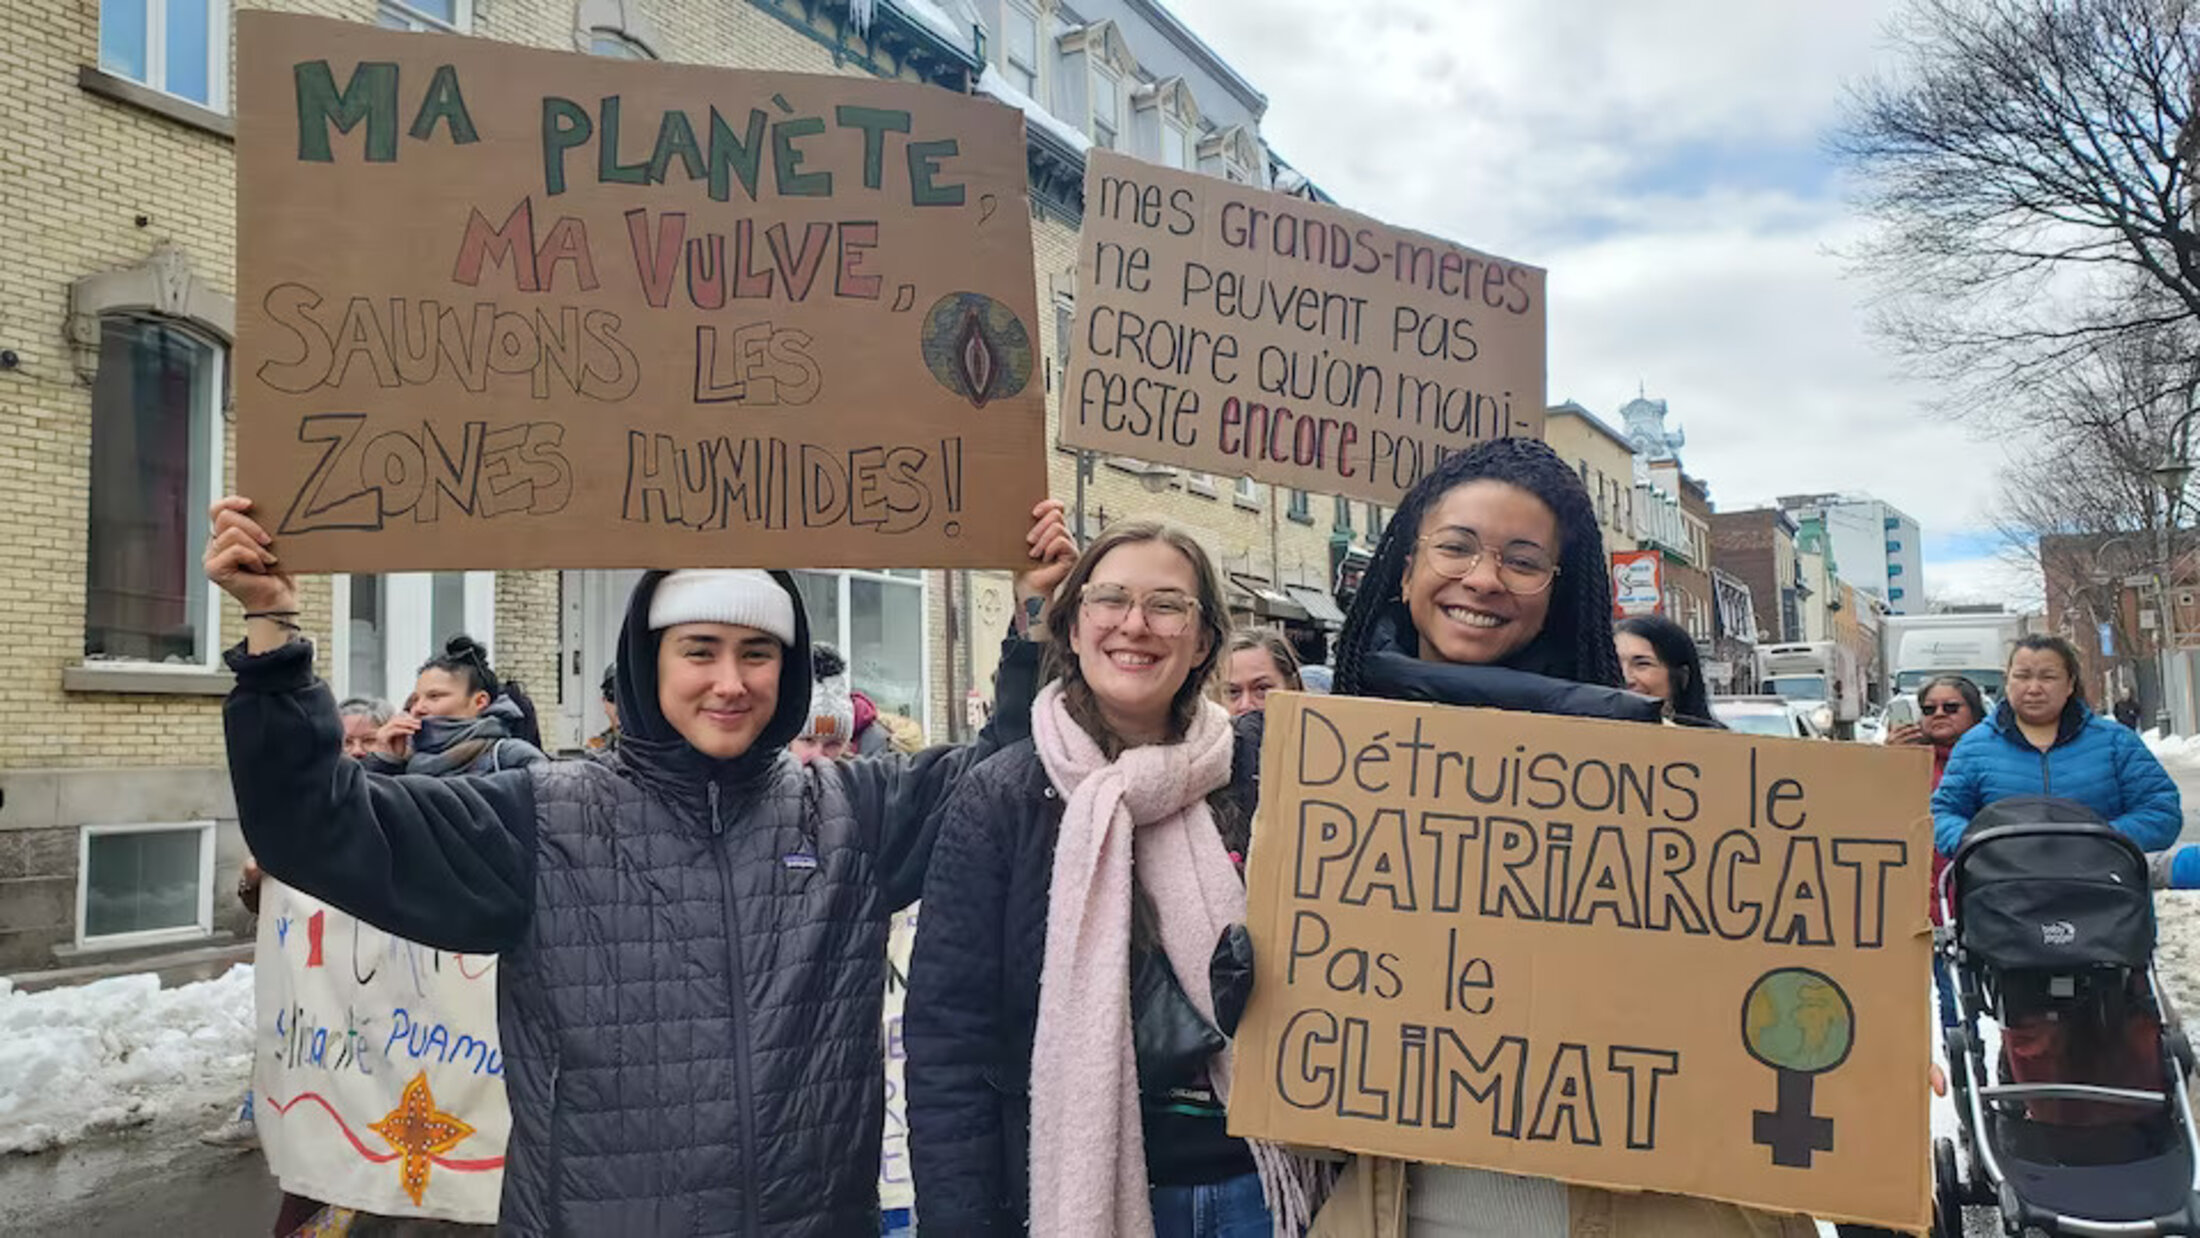 MA PLANÈTE,
MA VULVE,
SAUVONS LES
ZONES HUMIDES!
mes GRANDS-mères
ne peuvent pas
croire qu'on mani-
feste encore
Détruisons le
PATRIARCAT
Pas le
CLIMAT
PUAMU
patagonia
baby jogger